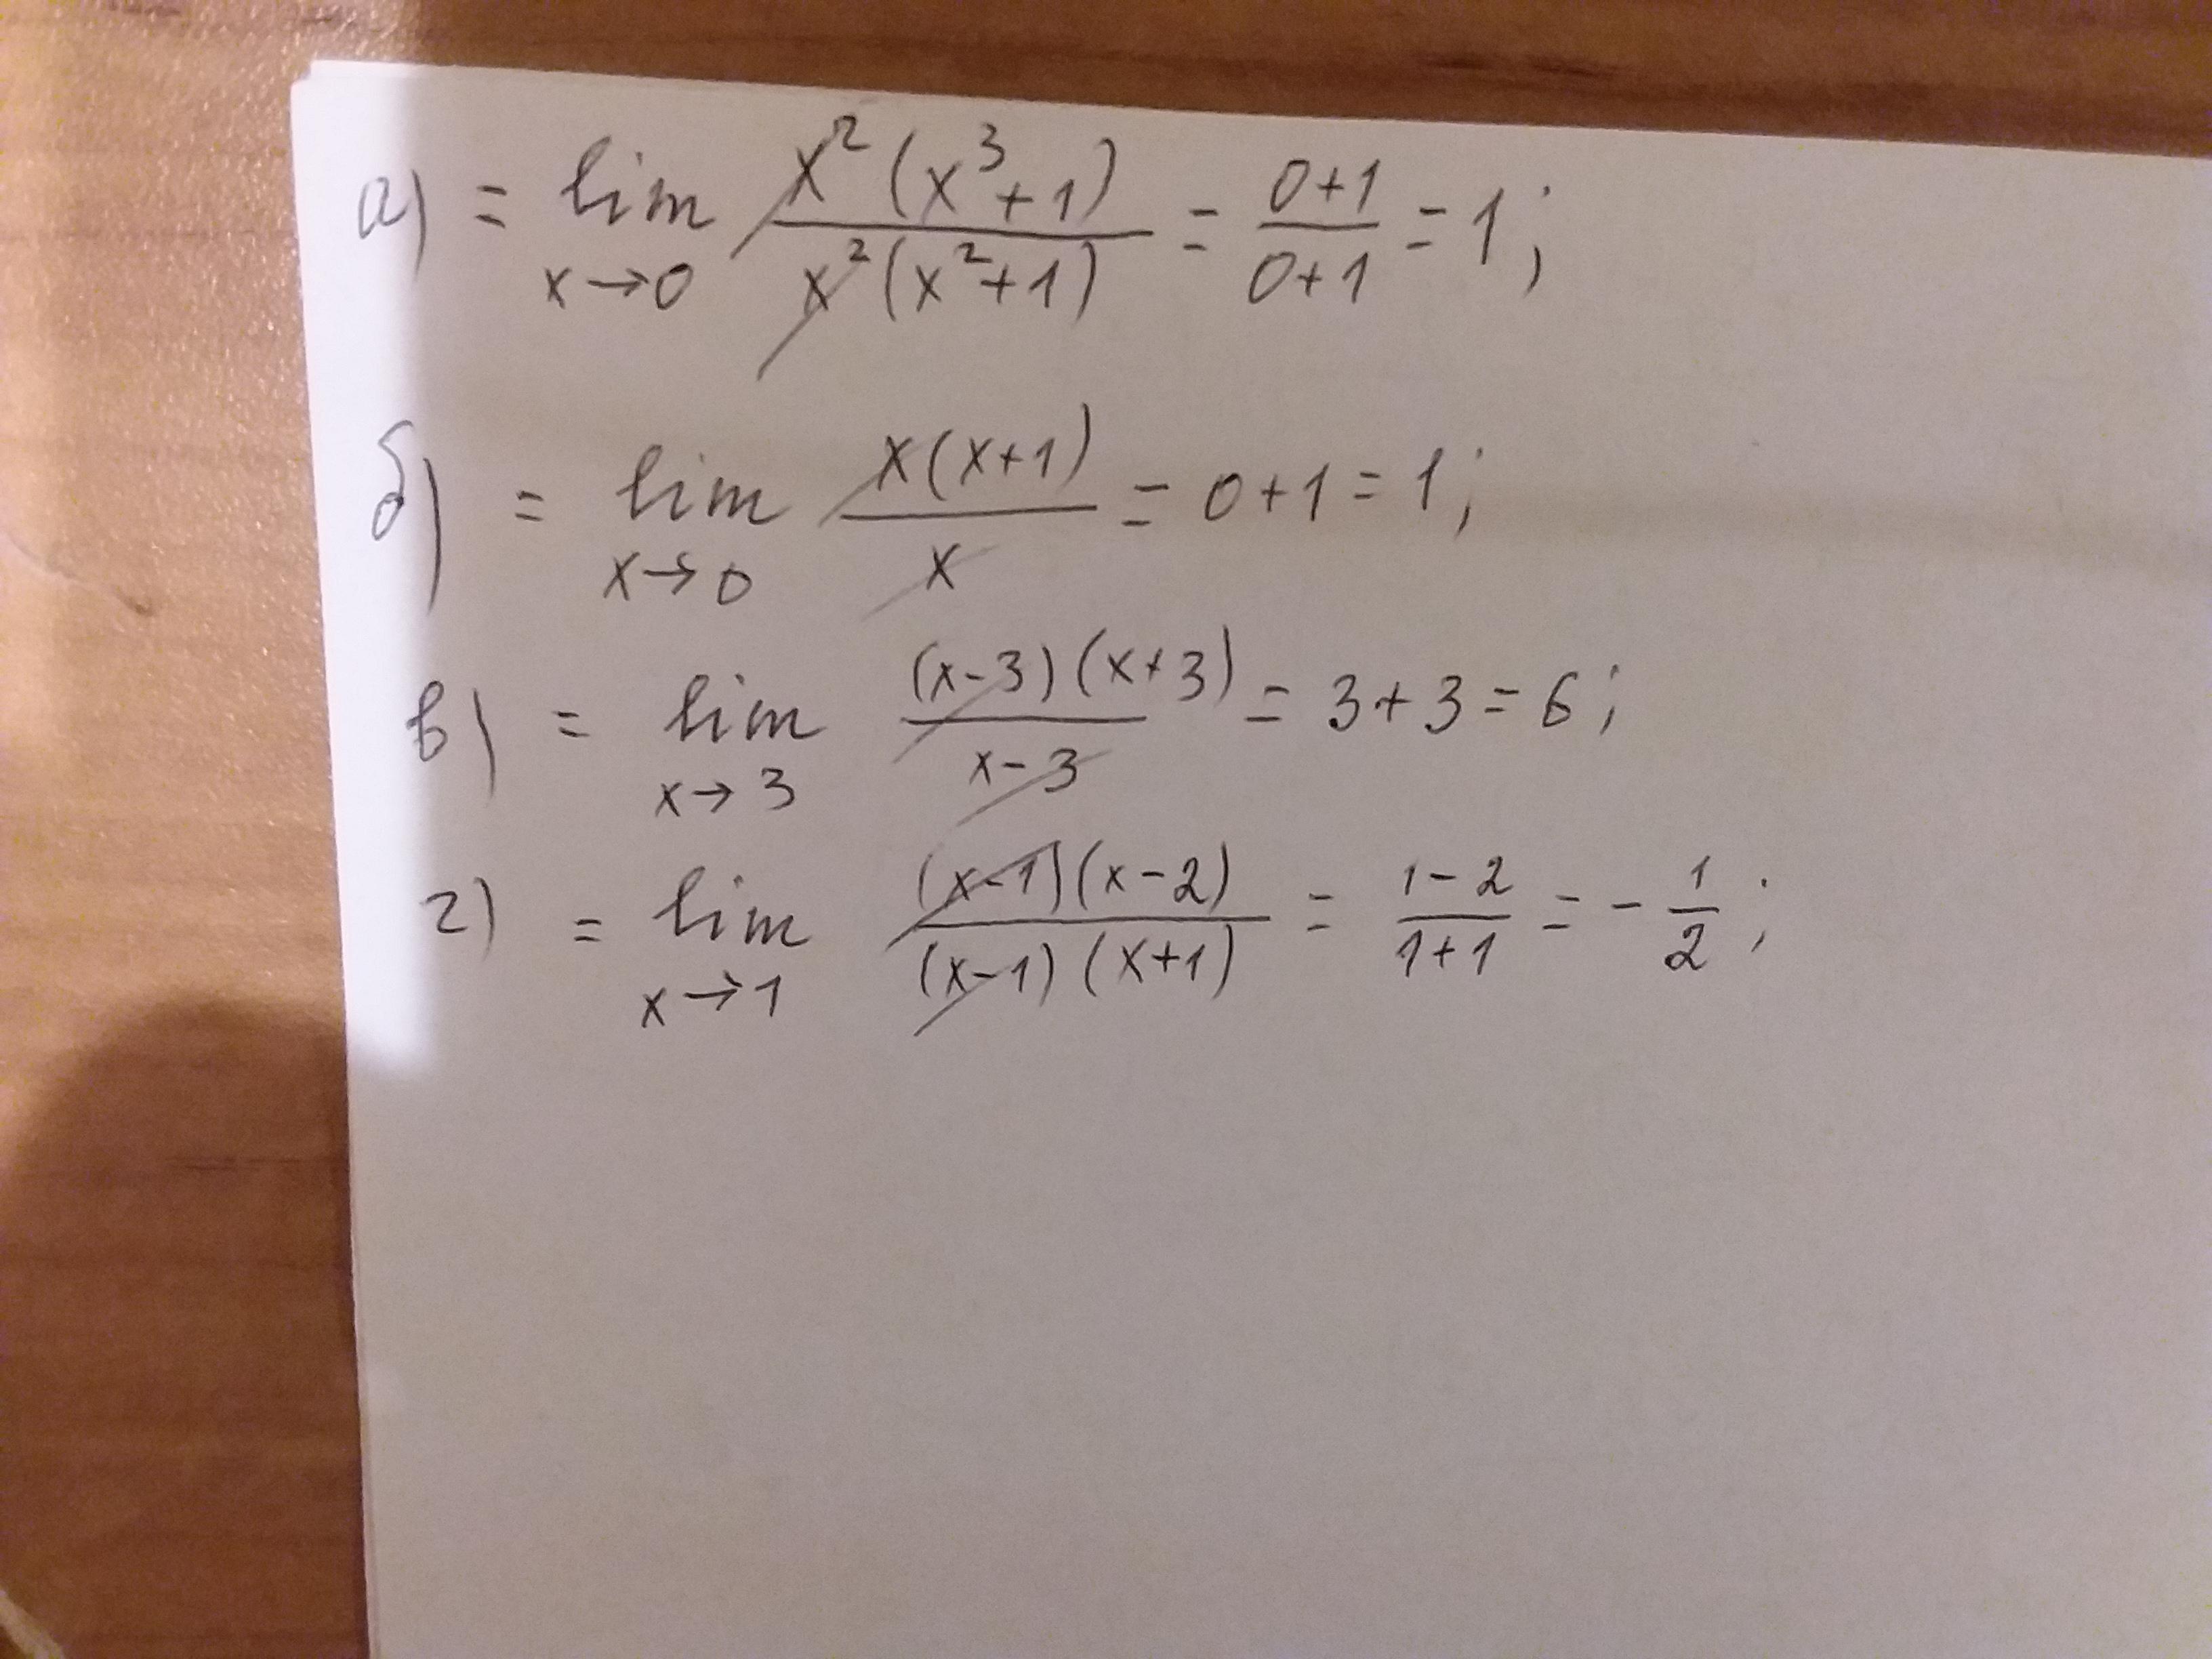 а) = lim x→0 x²(x³+1) / x²(x²+1) = 0+1 / 0+1 = 1;
б) = lim x→0 x(x+1) / x = 0+1 = 1;
в) = lim x→3 (x-3)(x+3) / x-3 = 3+3 = 6;
г) = lim x→1 (x-1)(x-2) / (x-1)(x+1) = 1-2 / 1+1 = - 1/2;